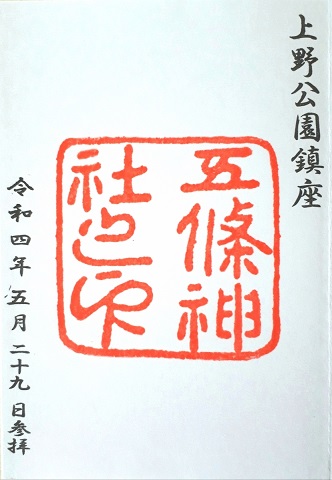 上野公園鎮座
五條神
社之印
令和四年五月二十九日参拝